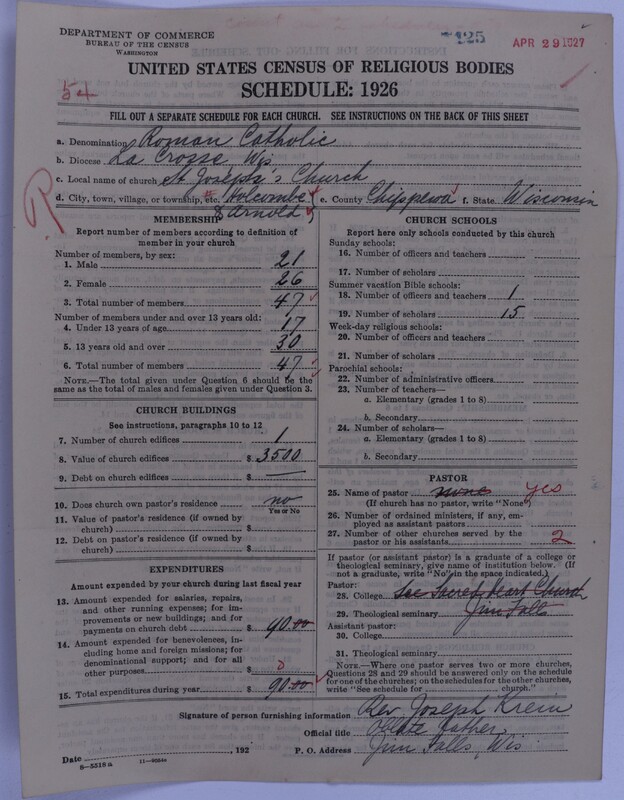 DEPARTMENT OF COMMERCE
BUREAU OF THE CENSUS
WASHINGTON
125
APR 29 1927
UNITED STATES CENSUS OF RELIGIOUS BODIES
SCHEDULE: 1926
54
FILL OUT A SEPARATE SCHEDULE FOR EACH CHURCH. SEE INSTRUCTIONS ON THE BACK OF THIS SHEET
a. Denomination Roman Catholic
b. Diocese La Crosse Wis
c. Local name of church St Joseph's Church
d. City, town, village, or township, etc. Holcombe & Arnold e. County Chippewa f. State Wisconsin
R
MEMBERSHIP
Report number of members according to definition of
member in your church
Number of members, by sex:
1. Male 21
2. Female 26
3. Total number of members 47
Number of members under and over 13 years old:
4. Under 13 years of age 17
5. 13 years old and over 30
6. Total number of members 47
NOTE.—The total given under Question 6 should be the
same as the total of males and females given under Question 3.
CHURCH BUILDINGS
See instructions, paragraphs 10 to 12
7. Number of church edifices 1
8. Value of church edifices $ 3500
9. Debt on church edifices $ —
10. Does church own pastor's residence no
Yes or No
11. Value of pastor's residence (if owned by
church) $
12. Debt on pastor's residence (if owned by
church) $
EXPENDITURES
Amount expended by your church during last fiscal year
13. Amount expended for salaries, repairs,
and other running expenses; for im-
provements or new buildings; and for
payments on church debt $ 90.00
14. Amount expended for benevolences, in-
cluding home and foreign missions; for
denominational support; and for all
other purposes $ 0
15. Total expenditures during year $ 90.00
CHURCH SCHOOLS
Report here only schools conducted by this church
Sunday schools:
16. Number of officers and teachers
17. Number of scholars
Summer vacation Bible schools:
18. Number of officers and teachers 1
19. Number of scholars 15
Week-day religious schools:
20. Number of officers and teachers
21. Number of scholars
Parochial schools:
22. Number of administrative officers
23. Number of teachers—
a. Elementary (grades 1 to 8)
b. Secondary
24. Number of scholars—
a. Elementary (grades 1 to 8)
b. Secondary
PASTOR
25. Name of pastor none yes
(If church has no pastor, write "None")
26. Number of ordained ministers, if any, em-
ployed as assistant pastors
27. Number of other churches served by the
pastor or his assistants 2
If pastor (or assistant pastor) is a graduate of a college or
theological seminary, give name of institution below. (If
not a graduate, write "No" in the space indicated.)
Pastor:
28. College See Sacred Heart Church
29. Theological seminary Jim Falls
Assistant pastor:
30. College
31. Theological seminary
NOTE.—Where one pastor serves two or more churches,
Questions 28 and 29 should be answered only on the schedule
for one of the churches; on the schedules for the other churches,
write "See schedule for church."
Signature of person furnishing information Rev Joseph Krein
Official title Oblate Father
Date , 192 P. O. Address Jim Falls, Wis
8—5518 a 11—9064a